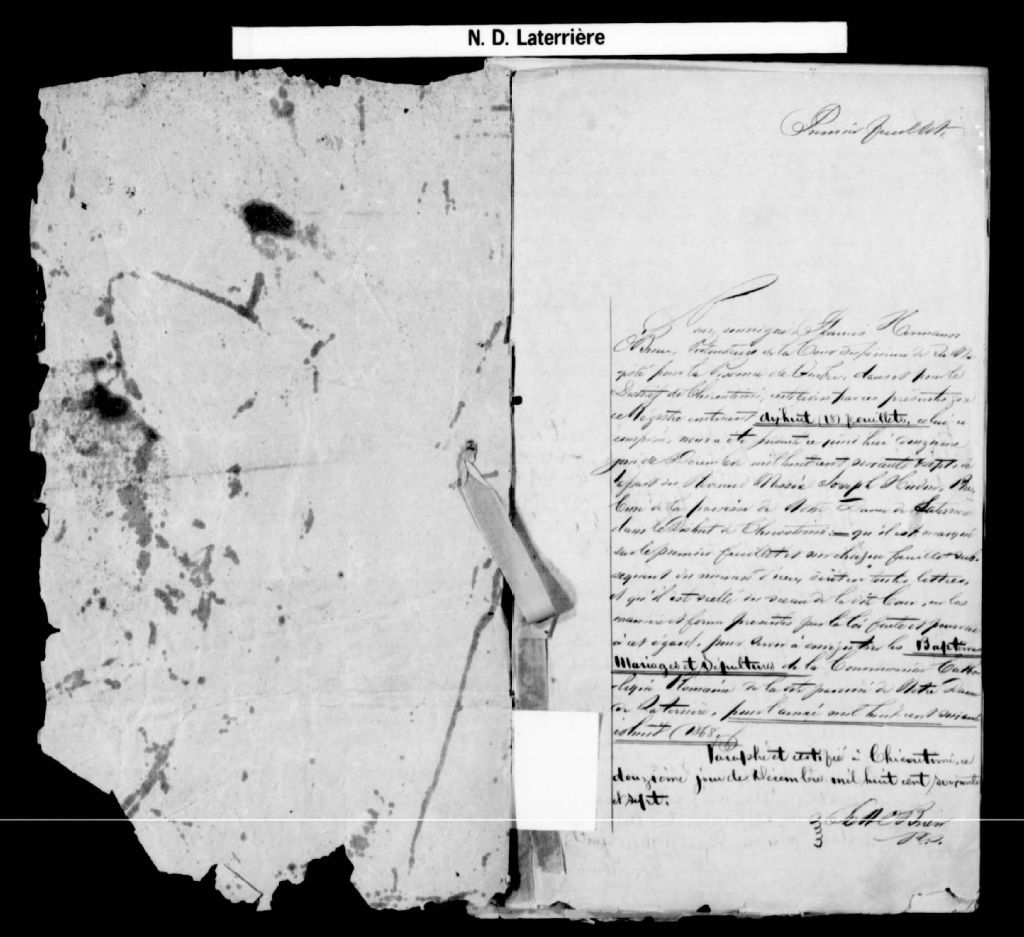 N. D. Laterrière
Premier feuillet.
Nous, soussigné, Francis Hermann
O'Brien, Protonotaire de la Cour Supérieure de Sa Ma-
jesté pour la Province de Québec, dans et pour le
District de Chicoutimi, certifions par ces présentes que
ce Régistre contenant dixhuit (18) feuillets, celui-ci
compris, nous a été présenté ce jour d'hui douzième
jour de Décembre mil huit cent soixante & sept, de
la part du Révérend Messire Joseph Hudon, Ptre,
Curé de la paroisse de Notre Dame de Laterrière
dans le District de Chicoutimi — qu'il est marqué
sur le premier feuillet et sur chaque feuillet sub-
séquent du numéro d'iceux écrit en toutes lettres,
et qu'il est scellé du sceau de la dite Cour, en la
manière et forme prescrites par la loi faite et pourvue
à cet égard, pour servir à enregistrer les Baptêmes
Mariages et Sépultures de la Communion Catho-
lique Romaine de la dite paroisse de Notre Dame
de Laterrière, pour l'année mil huit cent soixante
et huit (1868.)
Paraphé et certifié à Chicoutimi, ce
douzième jour de Décembre mil huit cent soixante
et sept.
F H O'Brien